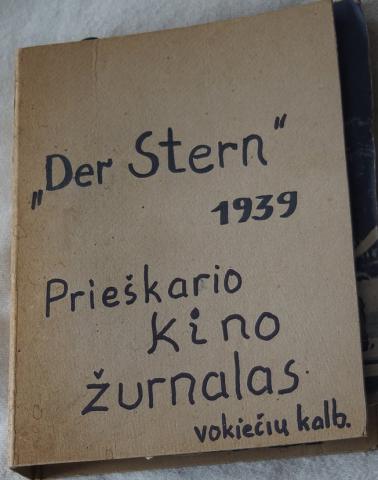 „Der Stern“
1939
Prieškario
kino
žurnalas
vokiečių kalb.